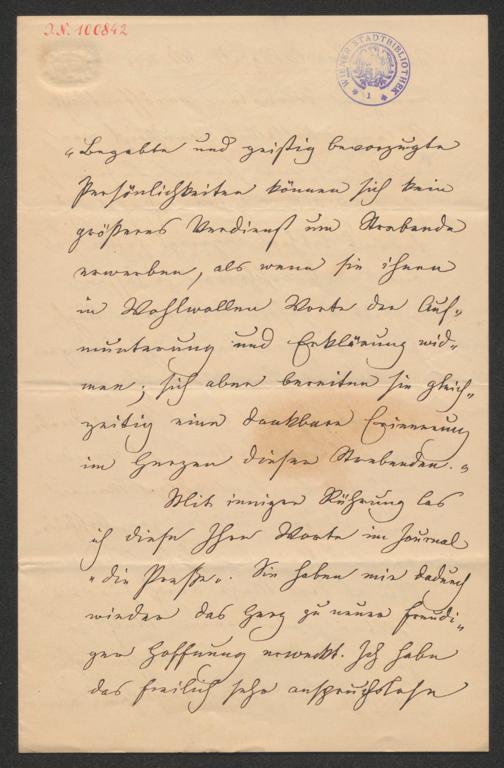 J.N. 100842
WIENER STADTBIBLIOTHEK
1
„Begabte und geistig bevorzugte
Persönlichkeiten können sich kein
größeres Verdienst um Strebende
erwerben, als wenn sie ihnen
in Wohlwollen Worte der Auf„
munterung und Erklärung wid„
men; sich aber bereiten sie gleich„
zeitig eine dankbare Erinnerung
im Herzen dieser Strebenden."
Mit inniger Rührung las
ich diese Ihre Worte im Journal
„die Presse". Sie haben mir dadurch
wieder das Herz zu neuer freudi„
ger Hoffnung erweckt. Ich habe
das freilich sehr anspruchslose